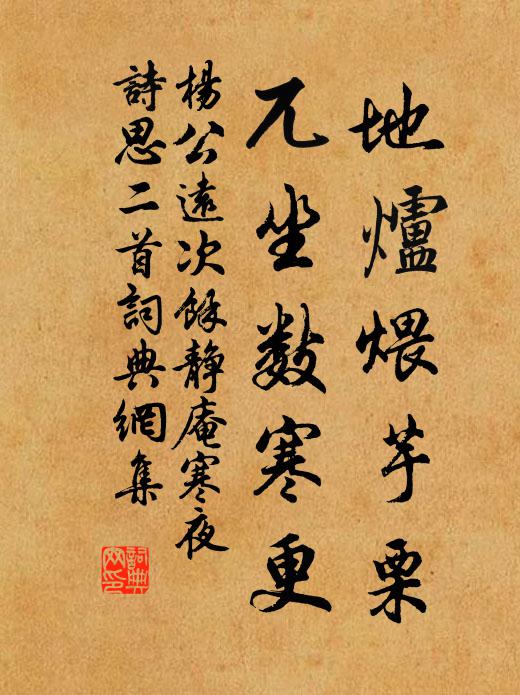 地爐煨芋栗
兀坐數寒更
楊公遠次餘靜庵寒夜
詩思二首詞典網集
詞典網印